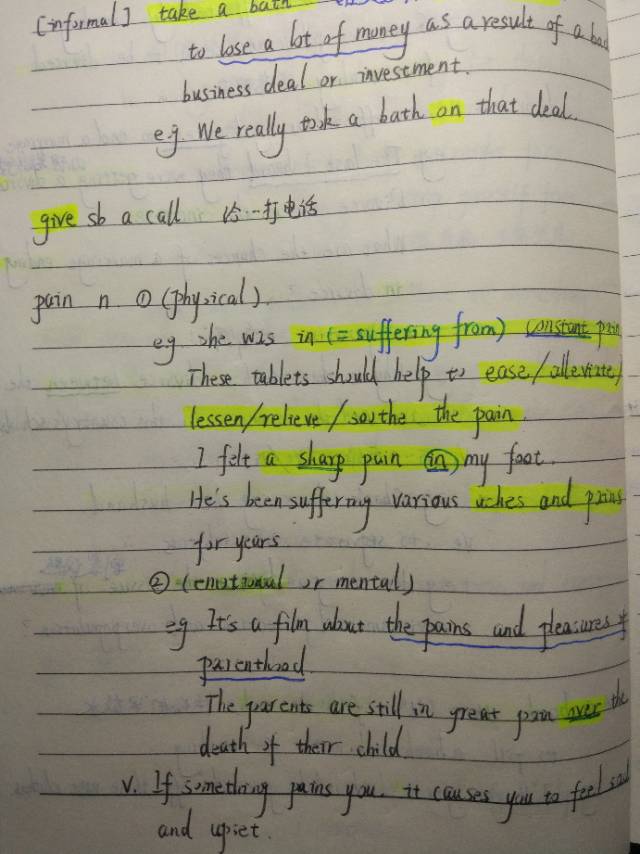 [informal] take a bath
to lose a lot of money as a result of a bad
business deal or investment.
eg. We really took a bath on that deal.
give sb a call 给…打电话
pain n ① (physical)
eg she was in (= suffering from) constant pain
These tablets should help to ease/alleviate/
lessen/relieve/soothe the pain
I felt a sharp pain in my foot.
He's been suffering various aches and pains
for years.
② (emotional or mental)
eg It's a film about the pains and pleasures of
parenthood
The parents are still in great pain over the
death of their child.
v. If something pains you, it causes you to feel sad
and upset.